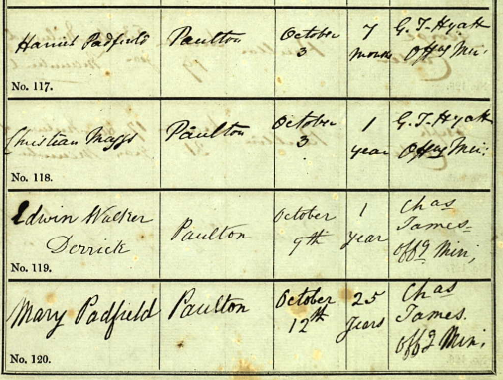 Harriet Padfield Paulton October 3 7 months G. T. Hyatt Offg Min:
No. 117.
Christian Maggs Paulton October 3 1 year G. T. Hyatt Offg Min:
No. 118.
Edwin Walker Derrick Paulton October 9th 1 year Chas James Offg Min;
No. 119.
Mary Padfield Paulton October 12th 25 years Chas James. Offg Min;
No. 120.